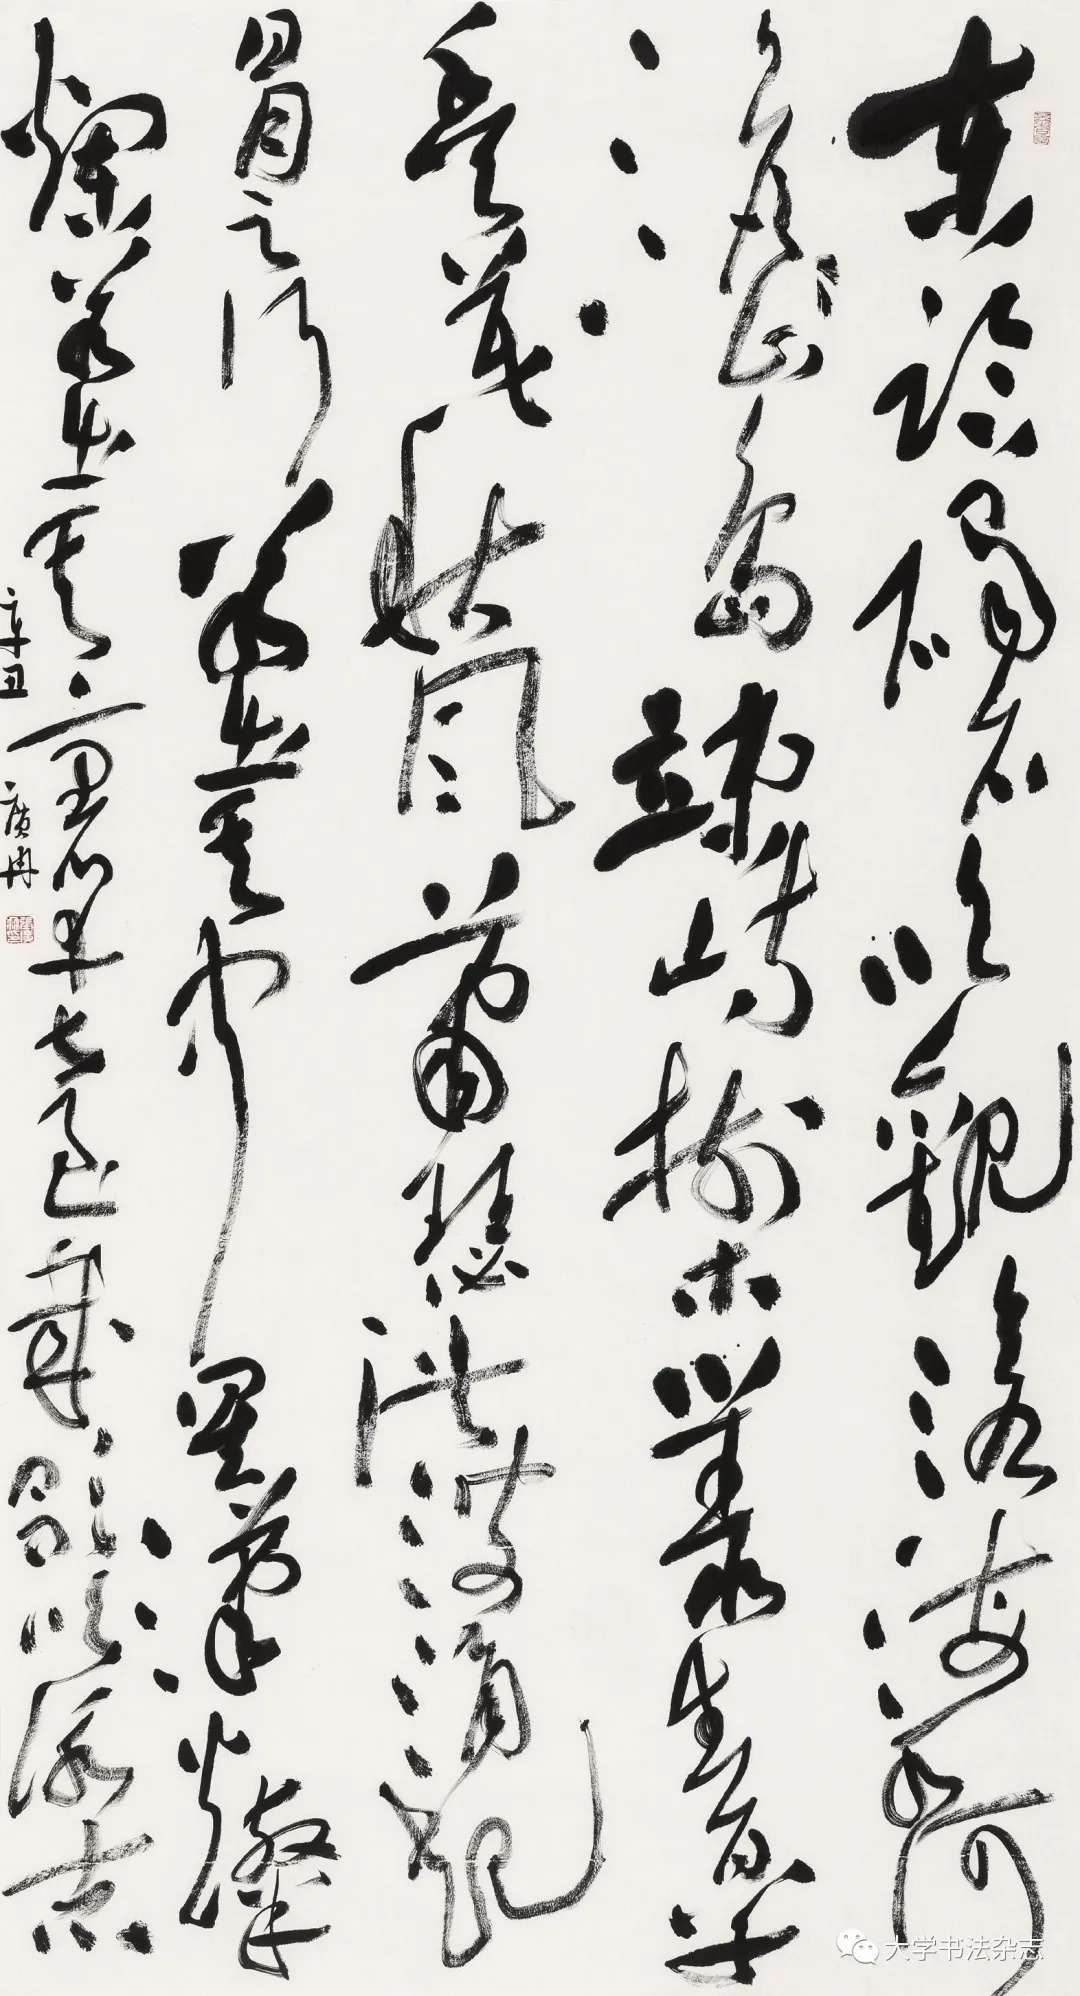 東臨碣石以觀滄海水何
澹澹山島竦峙樹木叢生百草
豐茂秋風蕭瑟洪波涌起
日月之行若出其中星漢燦
爛若出其裏幸甚至哉歌以詠志
辛丑
大学书法杂志